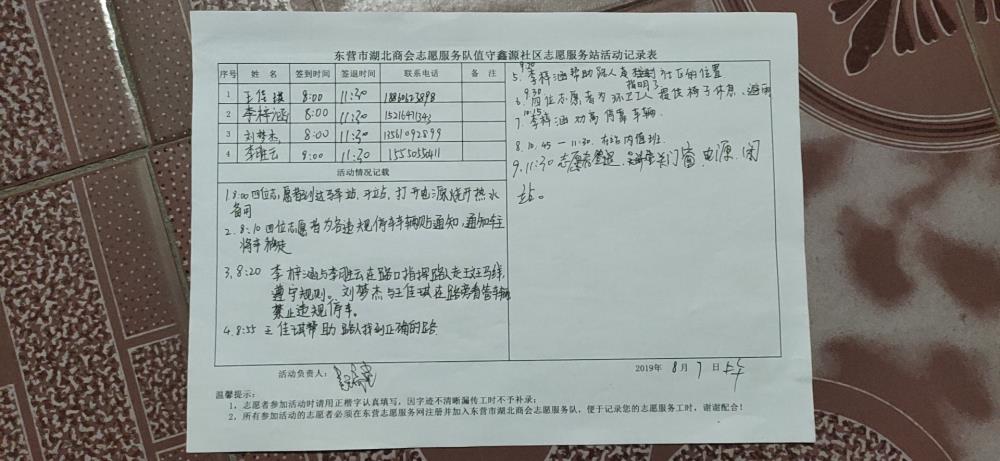 东营市湖北商会志愿服务队值守鑫源社区志愿服务站活动记录表
序号 姓 名 签到时间 签退时间 联系电话 备 注
1 王佳琪 8:00 11:30
2 李梓涵 8:00 11:30 15216471343
3 刘梦杰 8:00 11:30 13561092899
4 李雅云 8:00 11:30 1555055411
活动情况记载
1.8:00四位志愿者到达驿站,开站,打开电源烧开热水
备用
2.8:10四位志愿者为各违规停车车辆贴通知,通知车主
将车移走
3.8:20 李梓涵与李雅云在路口指挥路人走斑马线,
遵守规则。刘梦杰与王佳琪在路旁看管车辆
禁止违规停车。
4.8:55 王佳琪帮助路人找到正确的路
9:20
5.李梓涵帮助路人员指明了社区的位置
9:30
6.四位志愿者为环卫工人提供椅子休息、避雨
10:15
7.李梓涵劝离停靠车辆.
8.10.45一11:30.在站内值班.
9.11:30志愿者签退 关门窗,电源,闭
站。
活动负责人:
2019年 8月 7日 上午
温馨提示:
1,志愿者参加活动时请用正楷字认真填写,因字迹不清晰漏传工时不予补录;
2,所有参加活动的志愿者必须在东营志愿服务网注册并加入东营市湖北商会志愿服务队,便于记录您的志愿服务工时,谢谢配合!